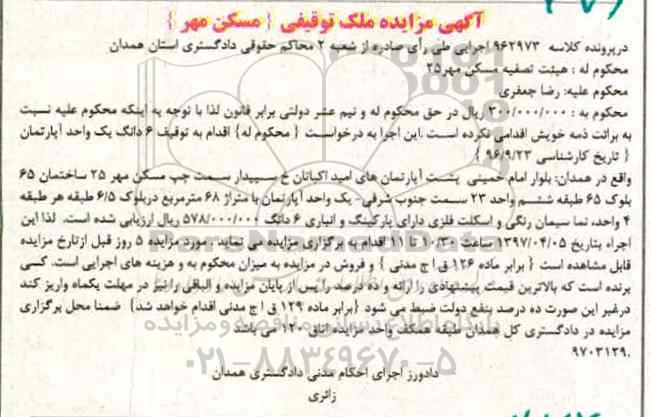 آگهی مزایده ملک توقیفی { مسکن مهر }
درپرونده کلاسه ۹۶۲۹۷۳ اجرایی طی رأی صادره از شعبه ۲ محاکم حقوقی دادگستری استان همدان
محکوم له : هیئت تصفیه مسکن مهر۲۵
محکوم علیه: رضا جعفری
محکوم به : ۳۰۰/۰۰۰/۰۰۰ ریال در حق محکوم له و نیم عشر دولتی برابر قانون لذا با توجه به اینکه محکوم علیه نسبت
به برائت ذمه خویش اقدامی نکرده است .این اجرا به درخواست { محکوم له} اقدام به توقیف ۶ دانگ یک واحد آپارتمان
{ تاریخ کارشناسی ۹۶/۹/۲۳ }
واقع در همدان: بلوار امام خمینی پشت آپارتمان های امید اکباتان خ سپیدار سمت چپ مسکن مهر ۲۵ ساختمان ۶۵
بلوک ۶۵ طبقه ششم واحد ۲۳ سمت جنوب شرقی- یک واحد آپارتمان با متراژ ۶۸ مترمربع دربلوک ۶/۵ طبقه هر طبقه
۴ واحد، نما سیمان رنگی و اسکلت فلزی دارای پارکینگ و انباری ۶ دانگ ۵۷۸/۰۰۰/۰۰۰ ریال ارزیابی شده است. لذا این
اجراء بتاریخ ۱۳۹۷/۰۴/۰۵ ساعت ۱۰/۳۰ تا ۱۱ اقدام به برگزاری مزایده می نماید . مورد مزایده ۵ روز قبل ازتارخ مزایده
قابل مشاهده است { برابر ماده ۱۲۶ ق ا ج مدنی } و فروش در مزایده به میزان محکوم به و هزینه های اجرایی است. کسی
برنده است که بالاترین قیمت پیشنهادی را ارائه و ده درصد را پس از پایان مزایده و الباقی رانیز در مهلت یکماه واریز کند
درغیر این صورت ده درصد بنفع دولت ضبط می شود {برابر ماده ۱۲۹ ق ا ج مدنی اقدام خواهد شد} ضمنا محل برگزاری
مزایده در دادگستری کل همدان طبقه همکف واحد مزایده اتاق ۱۲۰ می باشد
۹۷۰۳۱۲۹.
دادورز اجرای احکام مدنی دادگستری همدان
زائری
۰۲۱-۸۸۳۴۹۶۷۰-۵